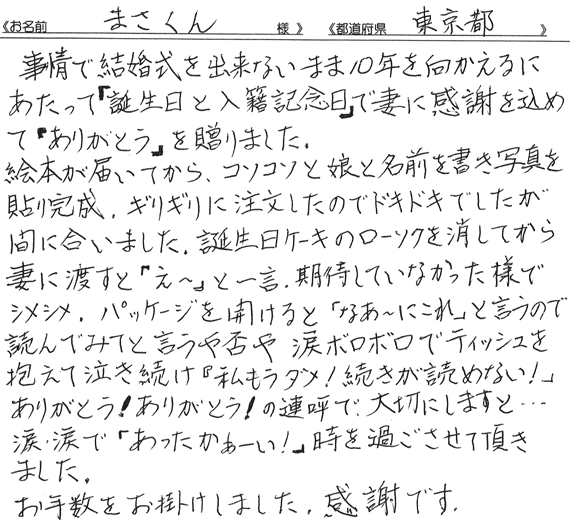 《お名前 まさくん 様 》 《都道府県 東京都 》
事情で結婚式を出来ないまま10年を向かえるに
あたって『誕生日と入籍記念日』で妻に感謝を込め
て『ありがとう』を贈りました。
絵本が届いてから、コソコソと娘と名前を書き写真を
貼り完成。ギリギリに注文したのでドキドキでしたが
間に合いました。誕生日ケーキのローソクを消してから
妻に渡すと『え〜』と一言。期待していなかった様で
シメシメ。パッケージを開けると「なあ〜にこれ」と言うので
読んでみてと言うや否や 涙ボロボロでティッシュを
抱えて泣き続け『私もうダメ!続きが読めない!」
ありがとう!ありがとう!の連呼で、大切にしますと…
涙・涙で「あったかぁーい!」時を過ごさせて頂き
ました。
お手数をお掛けしました。感謝です。